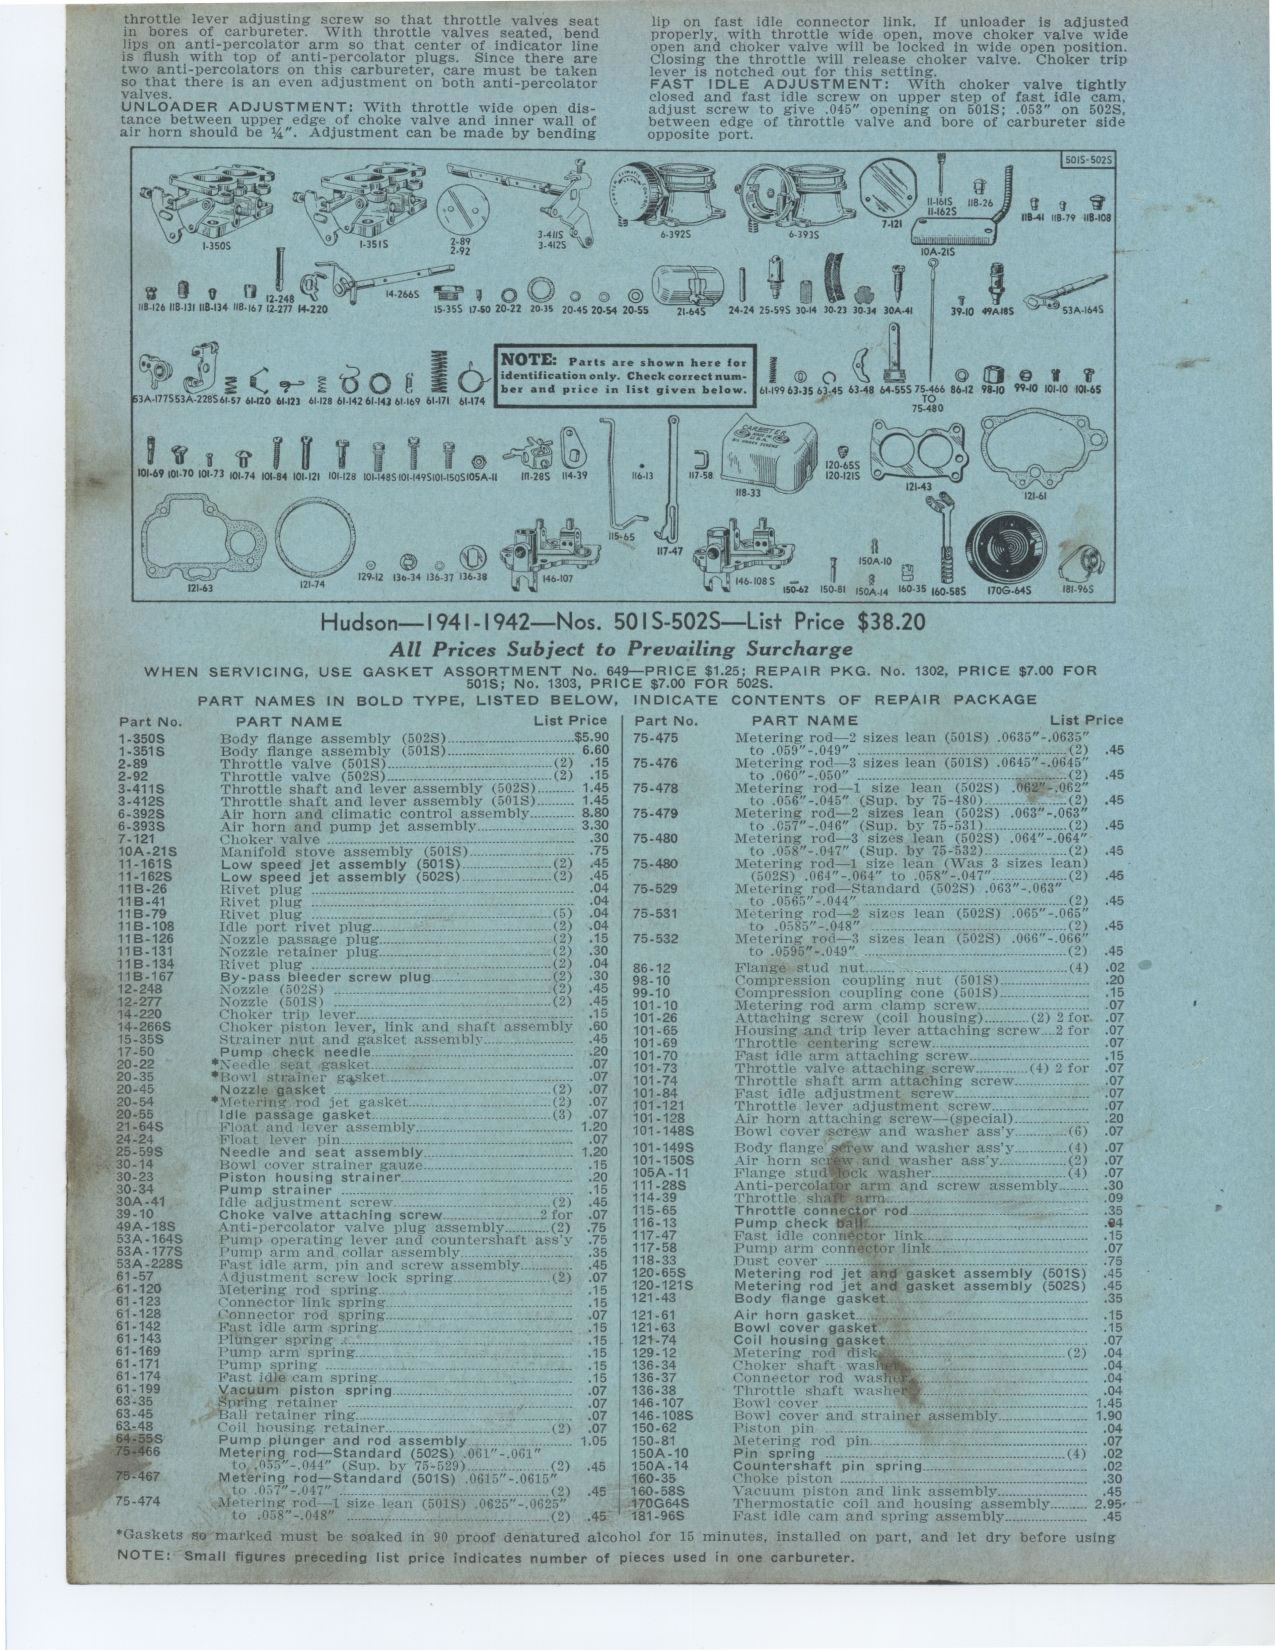 throttle lever adjusting screw so that throttle valves seat
in bores of carbureter. With throttle valves seated, bend
lips on anti-percolator arm so that center of indicator line
is flush with top of anti-percolator plugs. Since there are
two anti-percolators on this carbureter, care must be taken
so that there is an even adjustment on both anti-percolator
valves.
UNLOADER ADJUSTMENT: With throttle wide open dis-
tance between upper edge of choke valve and inner wall of
air horn should be ¼″. Adjustment can be made by bending
lip on fast idle connector link. If unloader is adjusted
properly, with throttle wide open, move choker valve wide
open and choker valve will be locked in wide open position.
Closing the throttle will release choker valve. Choker trip
lever is notched out for this setting.
FAST IDLE ADJUSTMENT: With choker valve tightly
closed and fast idle screw on upper step of fast idle cam,
adjust screw to give .045″ opening on 501S; .053″ on 502S,
between edge of throttle valve and bore of carbureter side
opposite port.
501S-502S
1-350S 1-351S 2-89 2-92 3-411S 3-412S 6-392S 6-393S 7-121 11-161S 11-162S 11B-26 10A-21S 11B-41 11B-79 11B-108
11B-126 11B-131 11B-134 11B-167 12-248 12-277 14-220 14-266S 15-35S 17-50 20-22 20-35 20-45 20-54 20-55 21-64S 24-24 25-59S 30-14 30-23 30-34 30A-41 39-10 49A-18S 53A-164S
53A-177S 53A-228S 61-57 61-120 61-123 61-128 61-142 61-143 61-169 61-171 61-174
NOTE: Parts are shown here for
identification only. Check correct num-
ber and price in list given below.
61-199 63-35 63-45 63-48 64-55S 75-466 TO 75-480 86-12 98-10 99-10 101-10 101-65
101-69 101-70 101-73 101-74 101-84 101-121 101-128 101-148S 101-149S 101-150S 105A-11 111-28S 114-39 116-13 117-58 118-33 120-65S 120-121S 121-43 121-61
CARTER
121-63 121-74 129-12 136-34 136-37 136-38 146-107 115-65 117-47 146-108S 150-62 150-81 150A-10 150A-14 160-35 160-58S 170G-64S 181-96S
Hudson—1941-1942—Nos. 501S-502S—List Price $38.20
All Prices Subject to Prevailing Surcharge
WHEN SERVICING, USE GASKET ASSORTMENT No. 649—PRICE $1.25; REPAIR PKG. No. 1302, PRICE $7.00 FOR
501S; No. 1303, PRICE $7.00 FOR 502S.
PART NAMES IN BOLD TYPE, LISTED BELOW, INDICATE CONTENTS OF REPAIR PACKAGE
Part No. PART NAME List Price
1-350S Body flange assembly (502S) $5.90
1-351S Body flange assembly (501S) 6.60
2-89 Throttle valve (501S) (2) .15
2-92 Throttle valve (502S) (2) .15
3-411S Throttle shaft and lever assembly (502S) 1.45
3-412S Throttle shaft and lever assembly (501S) 1.45
6-392S Air horn and climatic control assembly 8.80
6-393S Air horn and pump jet assembly 3.30
7-121 Choker valve .30
10A-21S Manifold stove assembly (501S) .75
11-161S Low speed jet assembly (501S) (2) .45
11-162S Low speed jet assembly (502S) (2) .45
11B-26 Rivet plug .04
11B-41 Rivet plug .04
11B-79 Rivet plug (5) .04
11B-108 Idle port rivet plug (2) .04
11B-126 Nozzle passage plug (2) .15
11B-131 Nozzle retainer plug (2) .30
11B-134 Rivet plug (2) .04
11B-167 By-pass bleeder screw plug (2) .30
12-248 Nozzle (502S) (2) .45
12-277 Nozzle (501S) (2) .45
14-220 Choker trip lever .15
14-266S Choker piston lever, link and shaft assembly .60
15-35S Strainer nut and gasket assembly .45
17-50 Pump check needle .20
20-22 *Needle seat gasket .07
20-35 *Bowl strainer gasket .07
20-45 Nozzle gasket (2) .07
20-54 *Metering rod jet gasket (2) .07
20-55 Idle passage gasket (3) .07
21-64S Float and lever assembly 1.20
24-24 Float lever pin .07
25-59S Needle and seat assembly 1.20
30-14 Bowl cover strainer gauze .15
30-23 Piston housing strainer .20
30-34 Pump strainer .15
30A-41 Idle adjustment screw (2) .45
39-10 Choke valve attaching screw 2 for .07
49A-18S Anti-percolator valve plug assembly (2) .75
53A-164S Pump operating lever and countershaft ass'y .75
53A-177S Pump arm and collar assembly .35
53A-228S Fast idle arm, pin and screw assembly .45
61-57 Adjustment screw lock spring (2) .07
61-120 Metering rod spring .15
61-123 Connector link spring .15
61-128 Connector rod spring .07
61-142 Fast idle arm spring .15
61-143 Plunger spring .15
61-169 Pump arm spring .15
61-171 Pump spring .15
61-174 Fast idle cam spring .15
61-199 Vacuum piston spring .07
63-35 Spring retainer .07
63-45 Ball retainer ring .07
63-48 Coil housing retainer (2) .07
64-55S Pump plunger and rod assembly 1.05
75-466 Metering rod—Standard (502S) .061″-.061″
to .055″-.044″ (Sup. by 75-529) (2) .45
75-467 Metering rod—Standard (501S) .0615″-.0615″
to .057″-.047″ (2) .45
75-474 Metering rod—1 size lean (501S) .0625″-.0625″
to .058″-.048″ (2) .45
Part No. PART NAME List Price
75-475 Metering rod—2 sizes lean (501S) .0635″-.0635″
to .059″-.049″ (2) .45
75-476 Metering rod—3 sizes lean (501S) .0645″-.0645″
to .060″-.050″ (2) .45
75-478 Metering rod—1 size lean (502S) .062″-.062″
to .056″-.045″ (Sup. by 75-480) (2) .45
75-479 Metering rod—2 sizes lean (502S) .063″-.063″
to .057″-.046″ (Sup. by 75-531) (2) .45
75-480 Metering rod—3 sizes lean (502S) .064″-.064″
to .058″-.047″ (Sup. by 75-532) (2) .45
75-480 Metering rod—1 size lean (Was 3 sizes lean)
(502S) .064″-.064″ to .058″-.047″ (2) .45
75-529 Metering rod—Standard (502S) .063″-.063″
to .0565″-.044″ (2) .45
75-531 Metering rod—2 sizes lean (502S) .065″-.065″
to .0585″-.048″ (2) .45
75-532 Metering rod—3 sizes lean (502S) .066″-.066″
to .0595″-.049″ (2) .45
86-12 Flange stud nut (4) .02
98-10 Compression coupling nut (501S) .20
99-10 Compression coupling cone (501S) .15
101-10 Metering rod arm clamp screw .07
101-26 Attaching screw (coil housing) (2) 2 for .07
101-65 Housing and trip lever attaching screw 2 for .07
101-69 Throttle centering screw .07
101-70 Fast idle arm attaching screw .15
101-73 Throttle valve attaching screw (4) 2 for .07
101-74 Throttle shaft arm attaching screw .07
101-84 Fast idle adjustment screw .07
101-121 Throttle lever adjustment screw .07
101-128 Air horn attaching screw—(special) .20
101-148S Bowl cover screw and washer ass'y (6) .07
101-149S Body flange screw and washer ass'y (4) .07
101-150S Air horn screw and washer ass'y (2) .07
105A-11 Flange stud lock washer (4) .07
111-28S Anti-percolator arm and screw assembly .30
114-39 Throttle shaft arm .09
115-65 Throttle connector rod .35
116-13 Pump check ball .04
117-47 Fast idle connector link .15
117-58 Pump arm connector link .07
118-33 Dust cover .75
120-65S Metering rod jet and gasket assembly (501S) .45
120-121S Metering rod jet and gasket assembly (502S) .45
121-43 Body flange gasket .35
121-61 Air horn gasket .15
121-63 Bowl cover gasket .15
121-74 Coil housing gasket .07
129-12 Metering rod disk (2) .04
136-34 Choker shaft washer .04
136-37 Connector rod washer .04
136-38 Throttle shaft washer .04
146-107 Bowl cover 1.45
146-108S Bowl cover and strainer assembly 1.90
150-62 Piston pin .04
150-81 Metering rod pin .07
150A-10 Pin spring (4) .02
150A-14 Countershaft pin spring .02
160-35 Choke piston .30
160-58S Vacuum piston and link assembly .45
170G64S Thermostatic coil and housing assembly 2.95
181-96S Fast idle cam and spring assembly .45
*Gaskets so marked must be soaked in 90 proof denatured alcohol for 15 minutes, installed on part, and let dry before using
NOTE: Small figures preceding list price indicates number of pieces used in one carbureter.